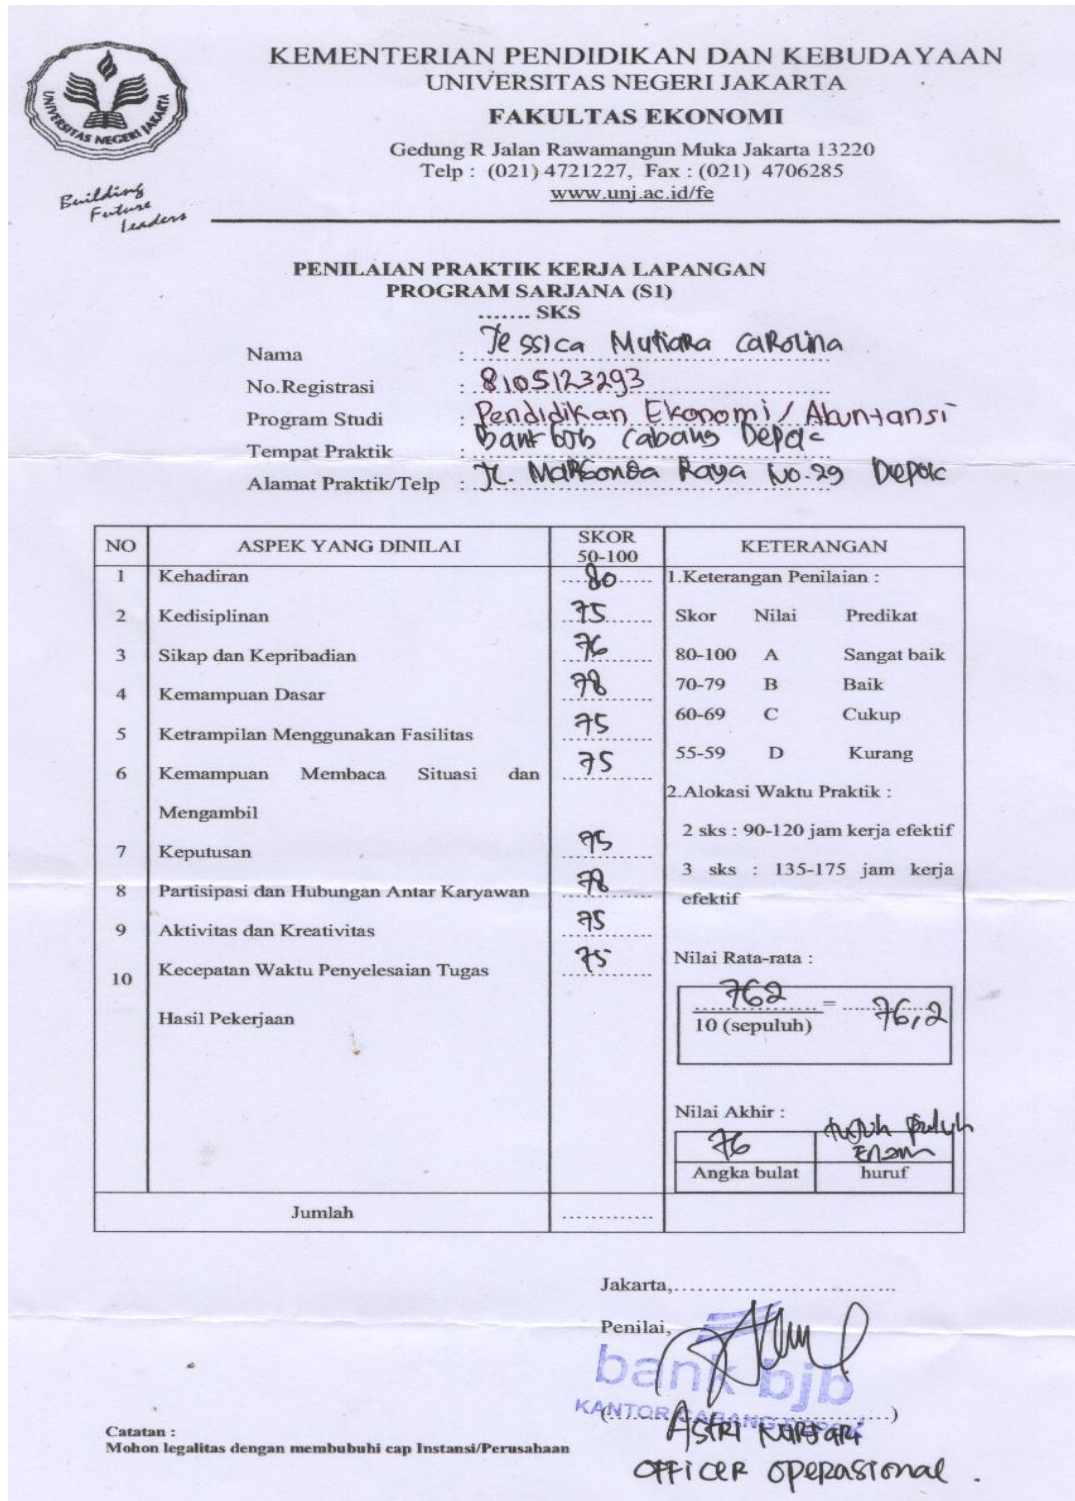 KEMENTERIAN PENDIDIKAN DAN KEBUDAYAAN
UNIVERSITAS NEGERI JAKARTA
FAKULTAS EKONOMI
Gedung R Jalan Rawamangun Muka Jakarta 13220
Telp : (021) 4721227, Fax : (021) 4706285
www.unj.ac.id/fe
UNIVERSITAS NEGERI JAKARTA
Building
Future
leaders
PENILAIAN PRAKTIK KERJA LAPANGAN
PROGRAM SARJANA (S1)
....... SKS
Nama : Jessica Mutiara Carolina
No.Registrasi : 8105123293
Program Studi : Pendidikan Ekonomi / Akuntansi
Tempat Praktik : Bank bjb Cabang Depok
Alamat Praktik/Telp : Jl. Margonda Raya No.29 Depok
NO ASPEK YANG DINILAI SKOR 50-100 KETERANGAN
1 Kehadiran 80 1.Keterangan Penilaian :
2 Kedisiplinan 75 Skor Nilai Predikat
3 Sikap dan Kepribadian 76 80-100 A Sangat baik
4 Kemampuan Dasar 78 70-79 B Baik
5 Ketrampilan Menggunakan Fasilitas 75 60-69 C Cukup
6 Kemampuan Membaca Situasi dan 75 55-59 D Kurang
Mengambil 2.Alokasi Waktu Praktik :
7 Keputusan 75 2 sks : 90-120 jam kerja efektif
8 Partisipasi dan Hubungan Antar Karyawan 78 3 sks : 135-175 jam kerja
efektif
9 Aktivitas dan Kreativitas 75
10 Kecepatan Waktu Penyelesaian Tugas 75 Nilai Rata-rata :
Hasil Pekerjaan 762 = 76,2
10 (sepuluh)
Nilai Akhir :
76 tujuh puluh Enam
Angka bulat huruf
Jumlah .............
Jakarta,................................
Penilai,
bank bjb
KANTOR CABANG DEPOK
(................................)
Astri
Officer Operasional .
Catatan :
Mohon legalitas dengan membubuhi cap Instansi/Perusahaan